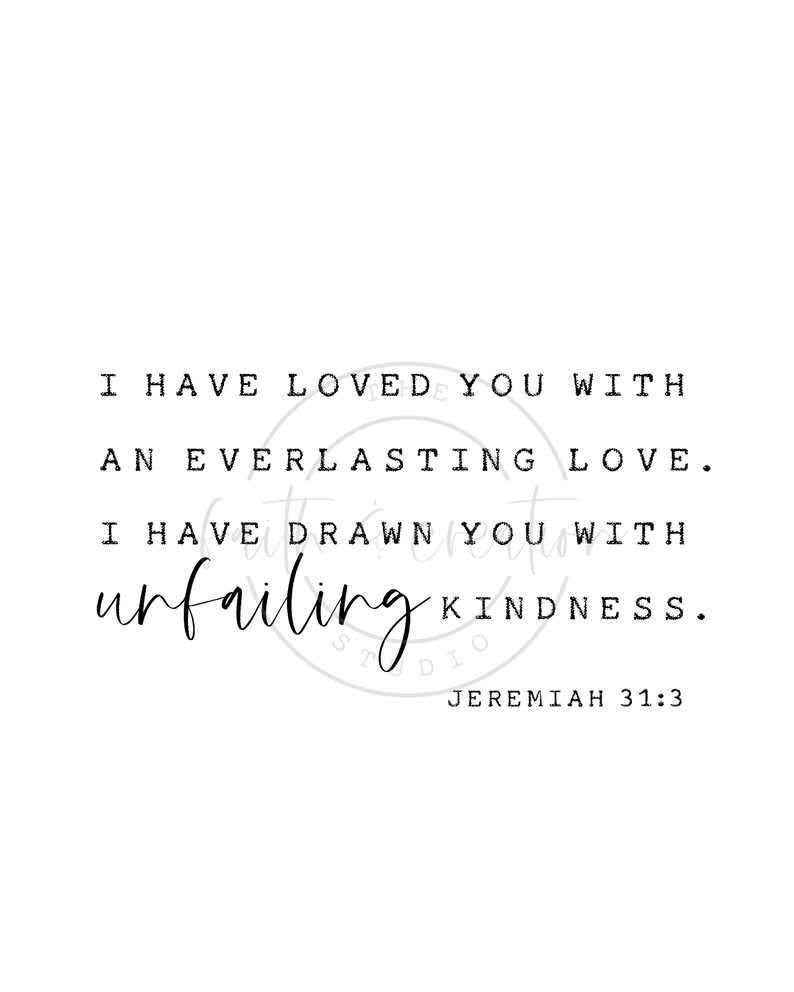 I HAVE LOVED YOU WITH
AN EVERLASTING LOVE.
I HAVE DRAWN YOU WITH
unfailing KINDNESS.
JEREMIAH 31:3
THE
faith & creation
STUDIO